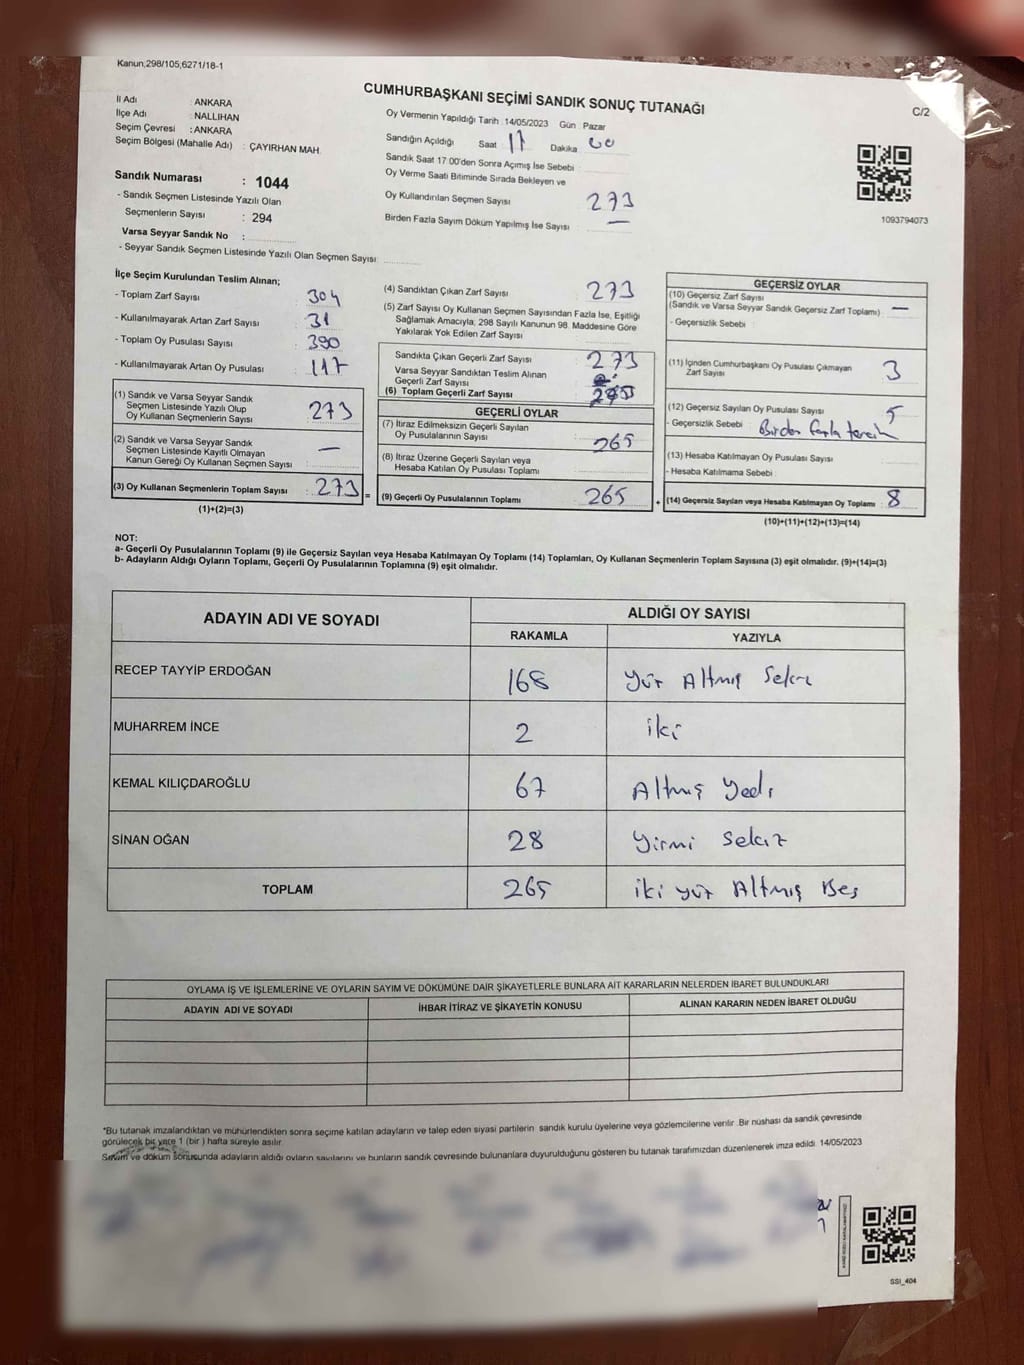 Kanun,298/105,6271/18-1
CUMHURBAŞKANI SEÇİMİ SANDIK SONUÇ TUTANAĞI
C/2
İl Adı : ANKARA
İlçe Adı : NALLIHAN
Seçim Çevresi : ANKARA
Seçim Bölgesi (Mahalle Adı) : ÇAYIRHAN MAH.
Sandık Numarası : 1044
- Sandık Seçmen Listesinde Yazılı Olan
Seçmenlerin Sayısı : 294
Varsa Seyyar Sandık No :
- Seyyar Sandık Seçmen Listesinde Yazılı Olan Seçmen Sayısı
Oy Vermenin Yapıldığı Tarih : 14/05/2023 Gün : Pazar
Sandığın Açıldığı Saat 17 Dakika 00
Sandık Saat 17:00'den Sonra Açımış İse Sebebi
Oy Verme Saati Bitiminde Sırada Bekleyen ve
Oy Kullandırılan Seçmen Sayısı 273
Birden Fazla Sayım Döküm Yapılmış İse Sayısı —
1093794073
İlçe Seçim Kurulundan Teslim Alınan;
- Toplam Zarf Sayısı 304
- Kullanılmayarak Artan Zarf Sayısı 31
- Toplam Oy Pusulası Sayısı 390
- Kullanılmayarak Artan Oy Pusulası 117
(1) Sandık ve Varsa Seyyar Sandık
Seçmen Listesinde Yazılı Olup
Oy Kullanan Seçmenlerin Sayısı 273
(2) Sandık ve Varsa Seyyar Sandık
Seçmen Listesinde Kayıtlı Olmayan
Kanun Gereği Oy Kullanan Seçmen Sayısı —
(3) Oy Kullanan Seçmenlerin Toplam Sayısı 273 =
(1)+(2)=(3)
(4) Sandıktan Çıkan Zarf Sayısı 273
(5) Zarf Sayısı Oy Kullanan Seçmen Sayısından Fazla İse, Eşitliği
Sağlamak Amacıyla, 298 Sayılı Kanunun 98. Maddesine Göre
Yakılarak Yok Edilen Zarf Sayısı
Sandıkta Çıkan Geçerli Zarf Sayısı 273
Varsa Seyyar Sandıktan Teslim Alınan
Geçerli Zarf Sayısı
(6) Toplam Geçerli Zarf Sayısı
GEÇERLİ OYLAR
(7) İtiraz Edilmeksizin Geçerli Sayılan
Oy Pusulalarının Sayısı 265
(8) İtiraz Üzerine Geçerli Sayılan veya
Hesaba Katılan Oy Pusulası Toplamı
(9) Geçerli Oy Pusulalarının Toplamı 265 +
GEÇERSİZ OYLAR
(10) Geçersiz Zarf Sayısı
(Sandık ve Varsa Seyyar Sandık Geçersiz Zarf Toplamı) —
- Geçersizlik Sebebi
(11) İçinden Cumhurbaşkanı Oy Pusulası Çıkmayan
Zarf Sayısı 3
(12) Geçersiz Sayılan Oy Pusulası Sayısı 5
- Geçersizlik Sebebi Birden fazla tercih
(13) Hesaba Katılmayan Oy Pusulası Sayısı
- Hesaba Katılmama Sebebi
(14) Geçersiz Sayılan veya Hesaba Katılmayan Oy Toplamı 8
(10)+(11)+(12)+(13)=(14)
NOT:
a- Geçerli Oy Pusulalarının Toplamı (9) ile Geçersiz Sayılan veya Hesaba Katılmayan Oy Toplamı (14) Toplamları, Oy Kullanan Seçmenlerin Toplam Sayısına (3) eşit olmalıdır. (9)+(14)=(3)
b- Adayların Aldığı Oyların Toplamı, Geçerli Oy Pusulalarının Toplamına (9) eşit olmalıdır.
ADAYIN ADI VE SOYADI ALDIĞI OY SAYISI
RAKAMLA YAZIYLA
RECEP TAYYİP ERDOĞAN 168 Yüz Altmış Sekiz
MUHARREM İNCE 2 iki
KEMAL KILIÇDAROĞLU 67 Altmış Yedi
SİNAN OĞAN 28 Yirmi Sekiz
TOPLAM 265 iki yüz Altmış Beş
OYLAMA İŞ VE İŞLEMLERİNE VE OYLARIN SAYIM VE DÖKÜMÜNE DAİR ŞİKAYETLERLE BUNLARA AİT KARARLARIN NELERDEN İBARET BULUNDUKLARI
ADAYIN ADI VE SOYADI İHBAR İTİRAZ VE ŞİKAYETİN KONUSU ALINAN KARARIN NEDEN İBARET OLDUĞU
*Bu tutanak imzalandıktan ve mühürlendikten sonra seçime katılan adayların ve talep eden siyasi partilerin sandık kurulu üyelerine veya gözlemcilerine verilir .Bir nüshası da sandık çevresinde
görülecek bir yere 1 (bir ) hafta süreyle asılır.
Sayım ve döküm sonusunda adayların aldığı oyların sayılarını ve bunların sandık çevresinde bulunanlara duyurulduğunu gösteren bu tutanak tarafımızdan düzenlenerek imza edildi. 14/05/2023
SSI_404